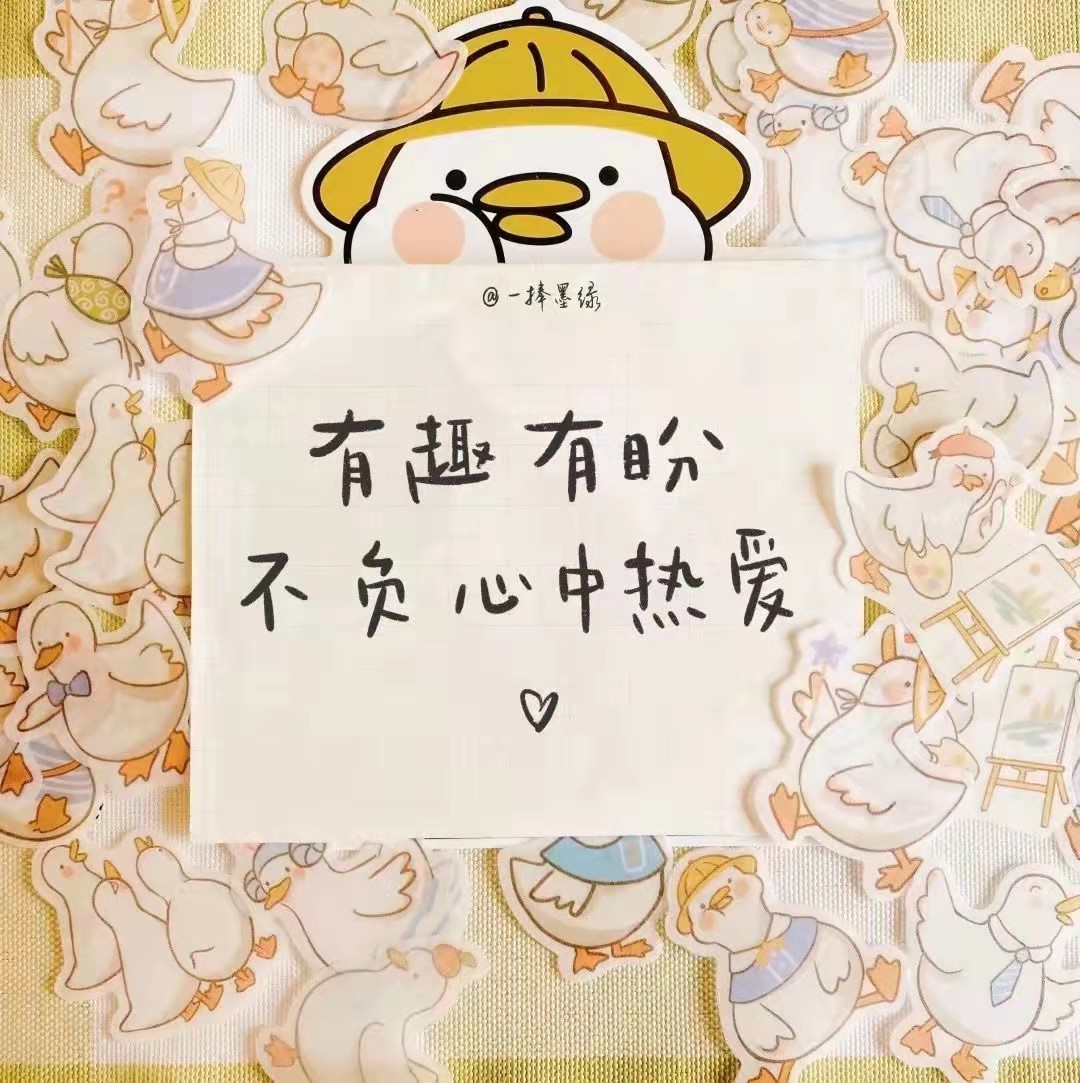 @一捧墨绿
有趣有盼
不负心中热爱